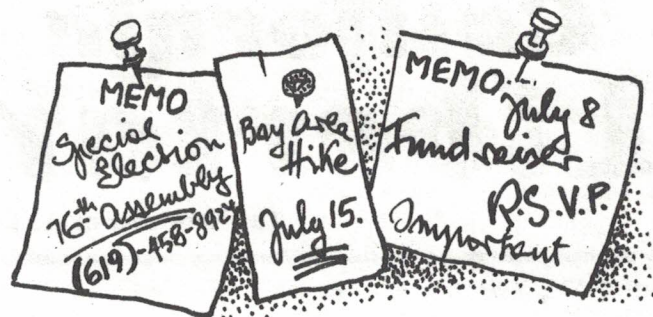 MEMO
Special
Election
76th Assembly
(619)-458-8924
Bay Area
Hike
July 15.
MEMO...
July 8
Fundraiser
R.S.V.P.
Important